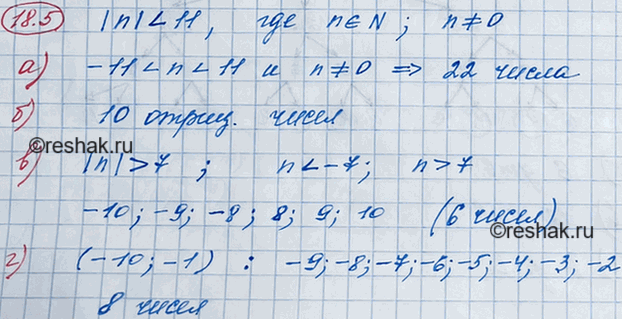 18.5 |n| < 11, где n∈N; n≠0
а) -11 < n < 11 и n≠0 => 22 числа
б) 10 отриц. чисел
©reshak.ru
в) |n| > 7; n < -7; n > 7
-10; -9; -8; 8; 9; 10 (6 чисел)
©reshak.ru
г) (-10; -1) : -9; -8; -7; -6; -5; -4; -3; -2
8 чисел